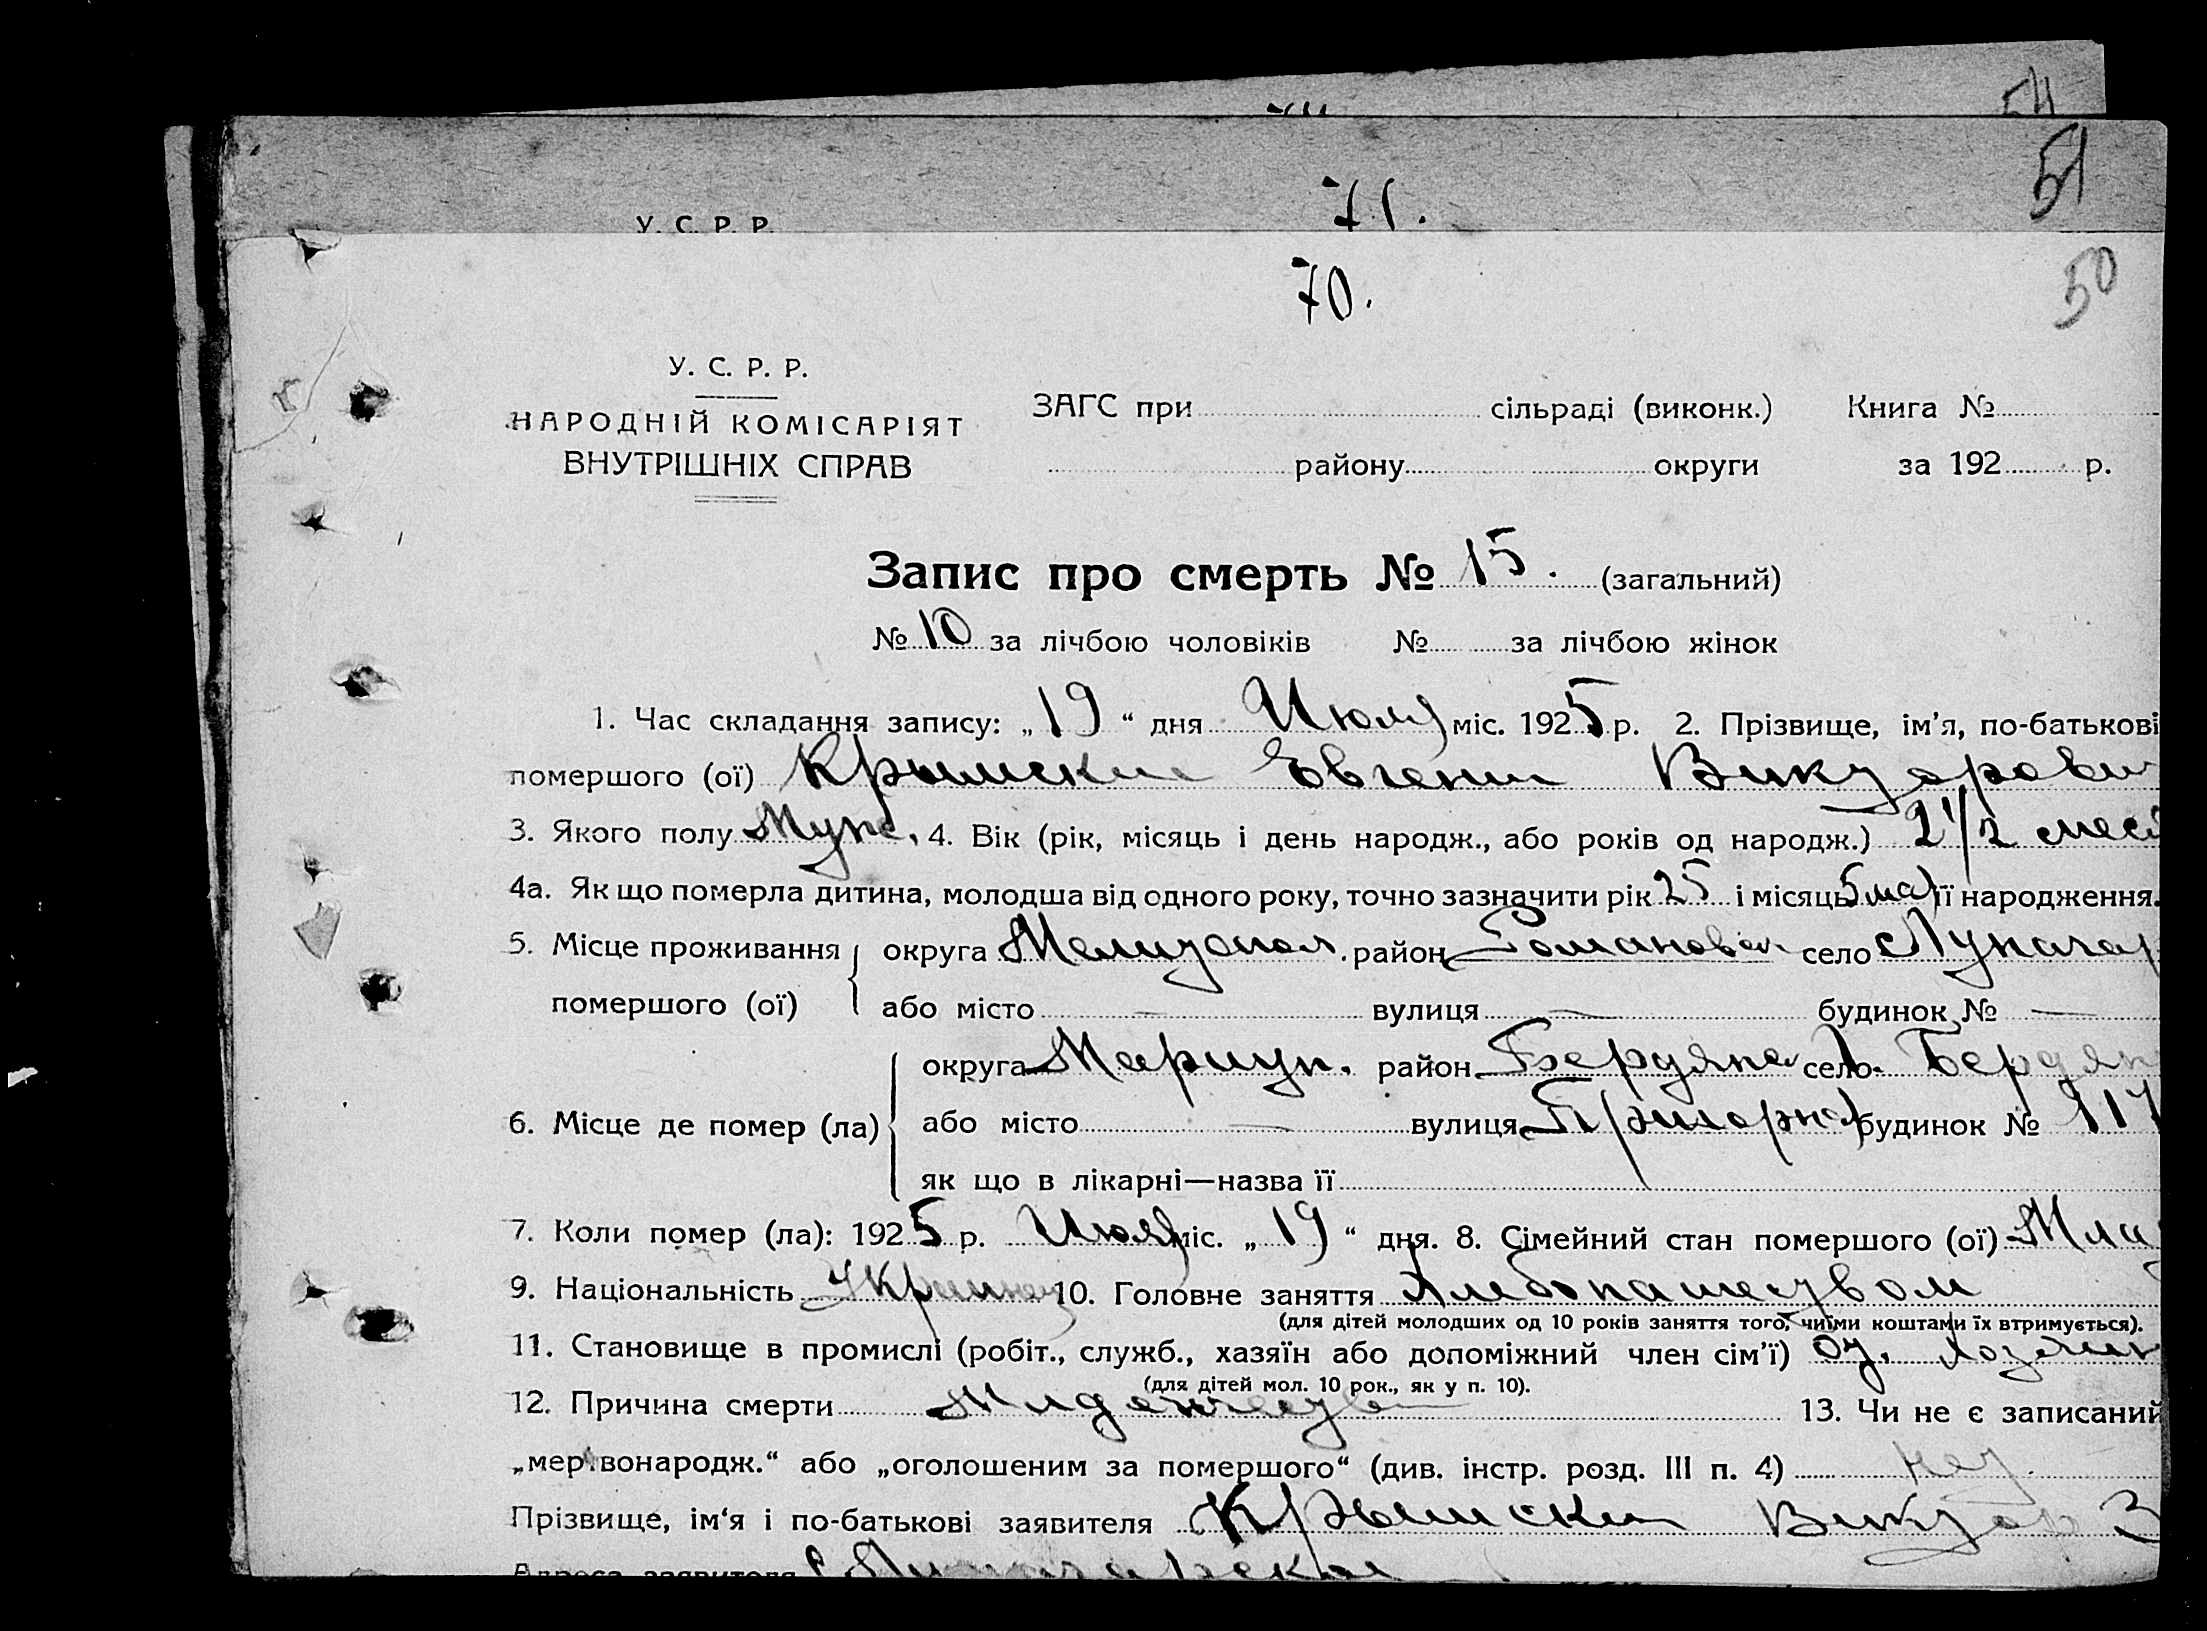 54
51
71.
У. С. Р. Р.
70.
50
У. С. Р. Р.
НАРОДНІЙ КОМІСАРІЯТ
ВНУТРІШНІХ СПРАВ
ЗАГС при сільраді (виконк.) Книга №
району округи за 192 р.
Запис про смерть № 15. (загальний)
№ 10 за лічбою чоловіків № за лічбою жінок
1. Час складання запису: „19“ дня Июля міс. 1925 р. 2. Прізвище, ім’я, по-батькові
помершого (ої) Крымский Евгений Викторови
3. Якого полу Муж. 4. Вік (рік, місяць і день народж., або років од народж.) 2 1/2 меся
4а. Як що померла дитина, молодша від одного року, точно зазначити рік 25 і місяць 5 мая її народження.
5. Місце проживання округа Мелитопол. район Романовск село Луначар
помершого (ої) або місто — вулиця — будинок № —
округа Мариуп. район Бердянск село Бердян
6. Місце де помер (ла) або місто — вулиця будинок № 117
як що в лікарні—назва її
7. Коли помер (ла): 1925 р. Июля міс. „19“ дня. 8. Сімейний стан помершого (ої) Мла
9. Національність Украинец 10. Головне заняття Хлебопашеством
(для дітей молодших од 10 років заняття того, чиїми коштами їх втримується).
11. Становище в промислі (робіт., служб., хазяїн або допоміжний член сім’ї)
(для дітей мол. 10 рок., як у п. 10).
12. Причина смерти 13. Чи не є записаний
„мертвонародж.“ або „оголошеним за помершого“ (див. інстр. розд. III п. 4) нет
Прізвище, ім‘я і по-батькові заявителя Крымский Виктор З
Адреса заявителя